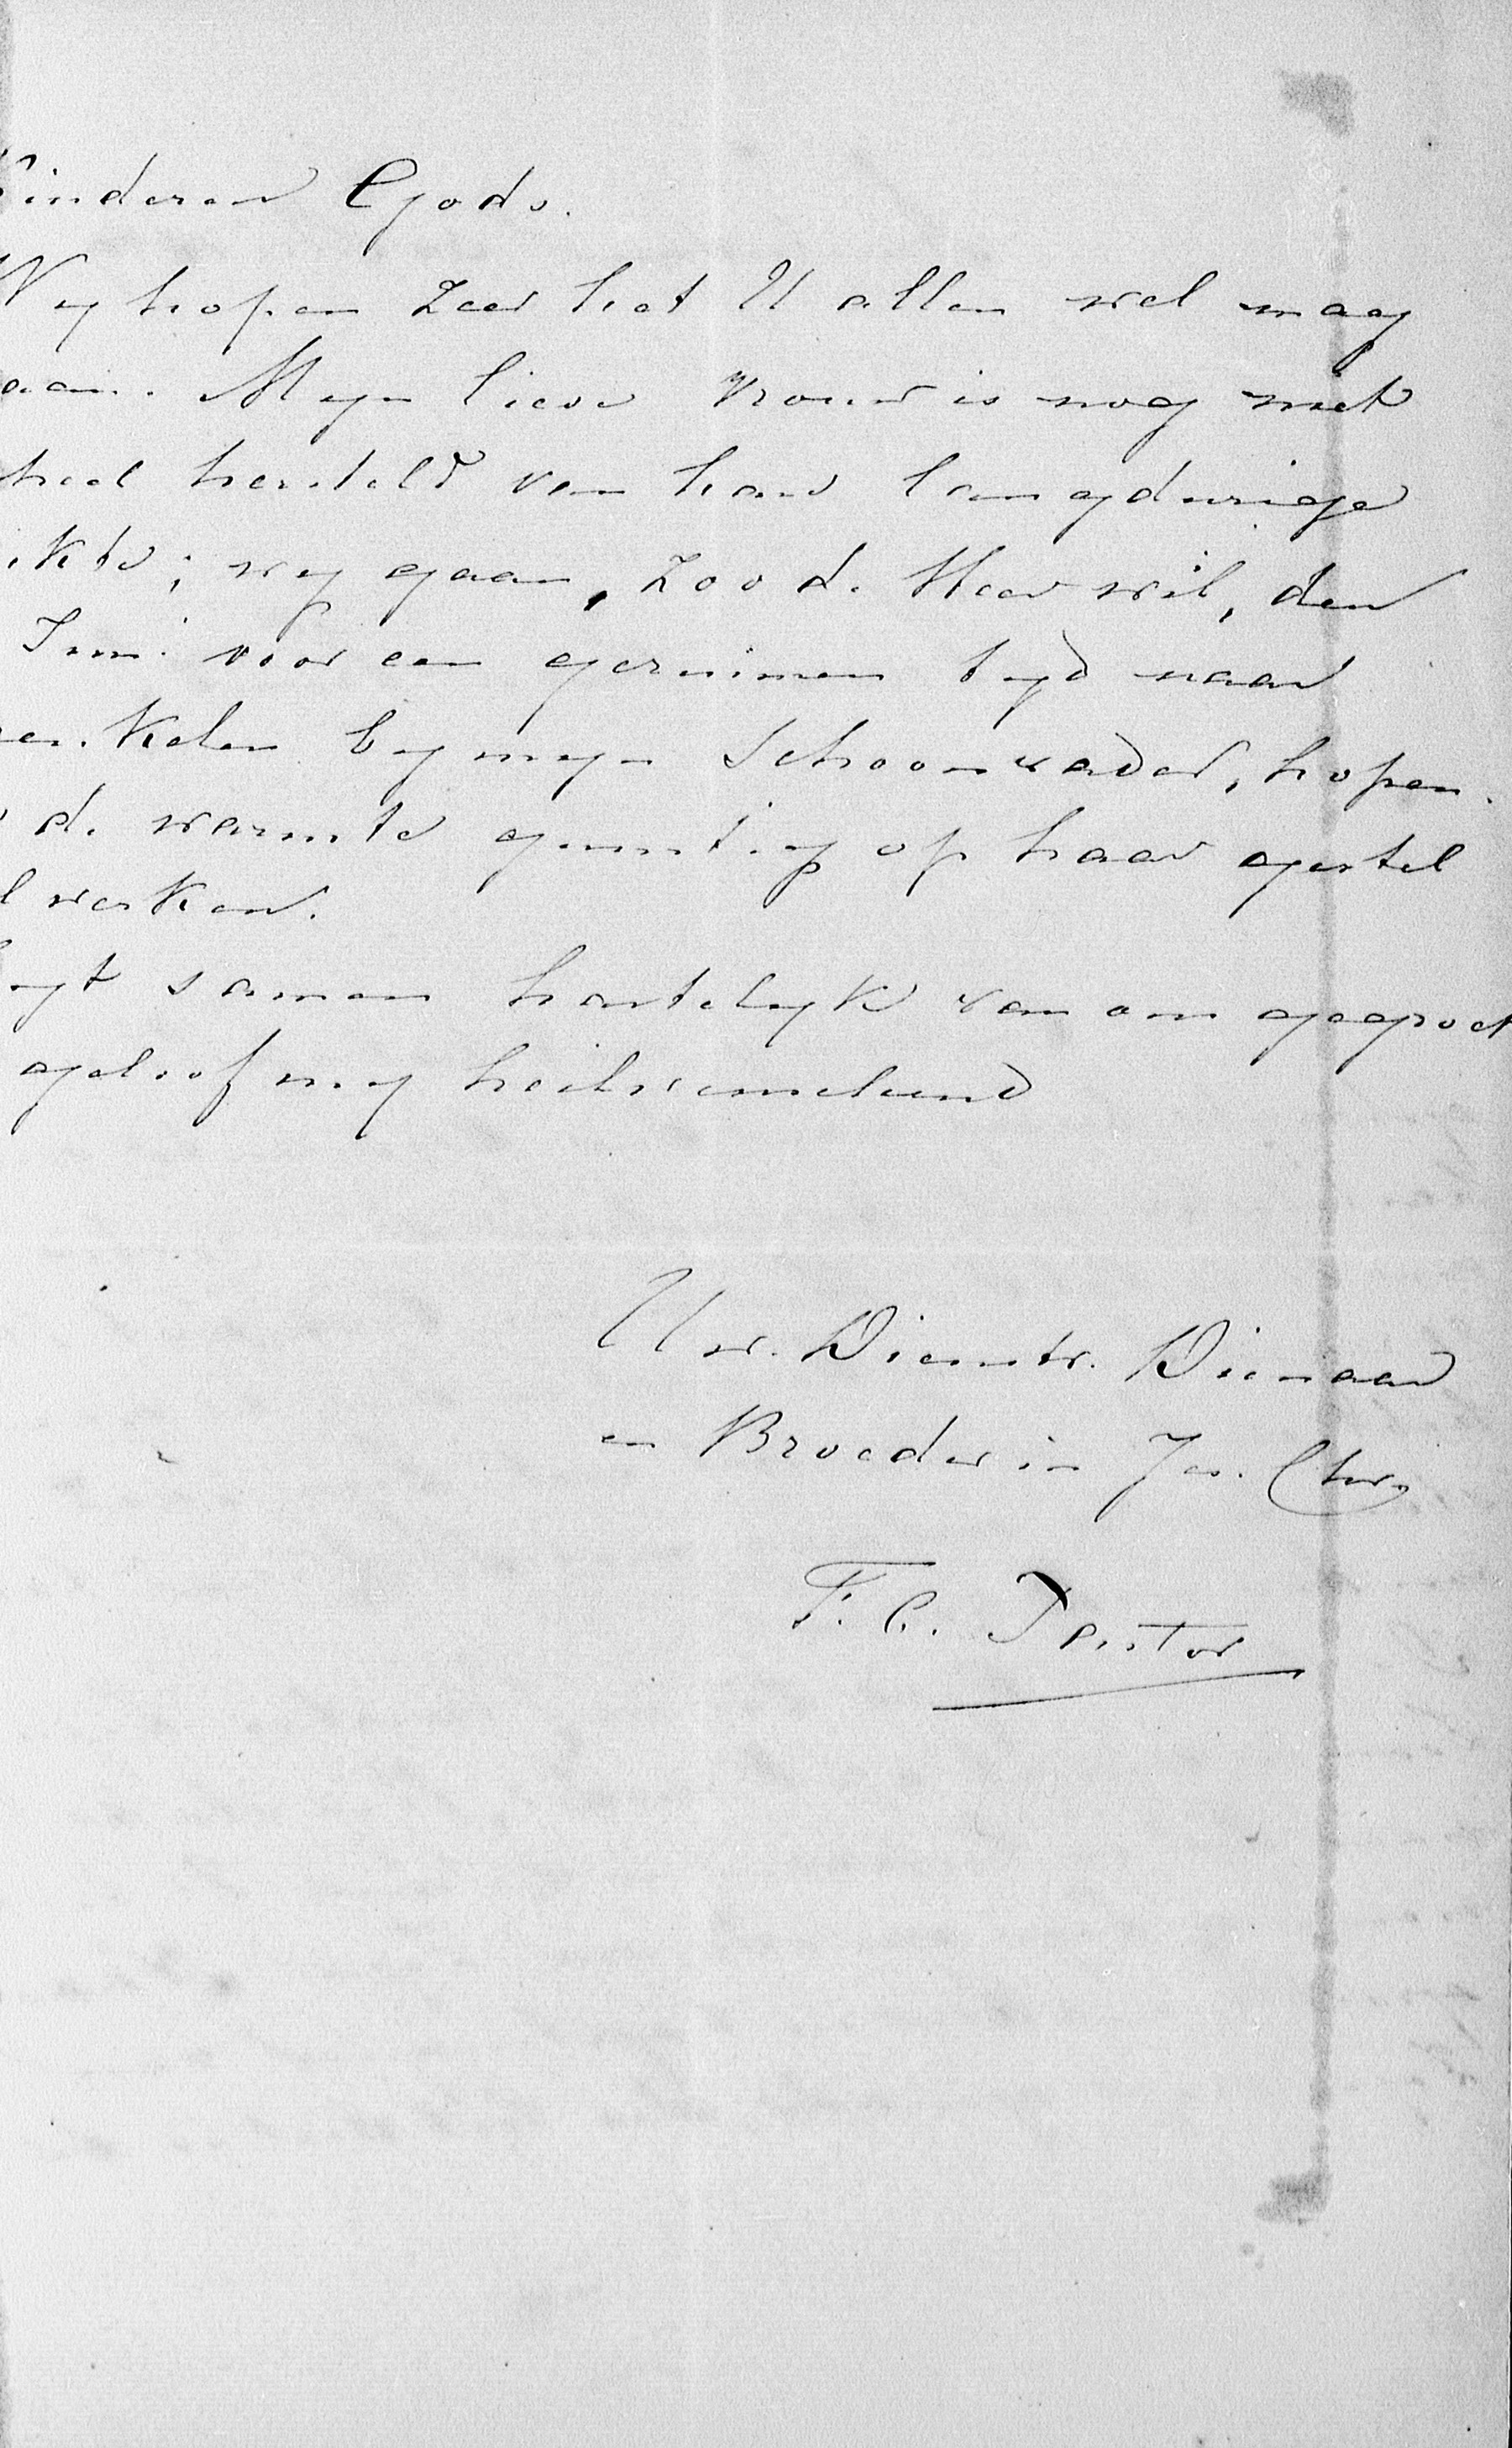 Kinderen Gods.
Wy hopen zeer het U allen wel mag
aan. Myn lieve Vrouw is nog niet
heel hersteld van haar langdurige
ikte; wy gaan, zoo de Heer wil, den
Juni voor een geruimen tyd naar
kelen by myn Schoonvader, hopen.
de warmte gunstig op haar gestel
l werken.
yt samen hartelyk van ons gegroet
geloof my heilwenschend
Uw. Dienstw. Dienaar
en Broeder in Jes. Chr.
F. C.